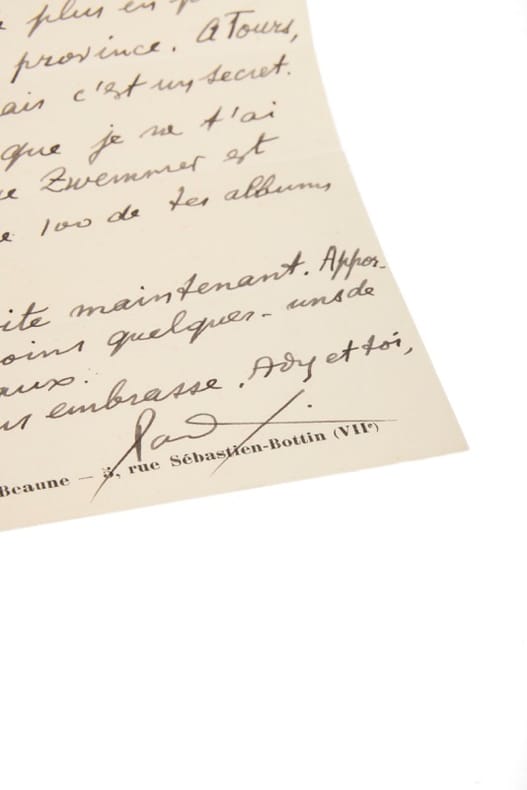 plus en
province. A Tours,
ais c'est un secret.
que je ne t'ai
ue Zwemmer est
e 100 de tes albums
ite maintenant. Appor-
oins quelques-uns de
aux.
us embrasse. Ady et toi,
Paul
Beaune — 5, rue Sébastien-Bottin (VIIe)